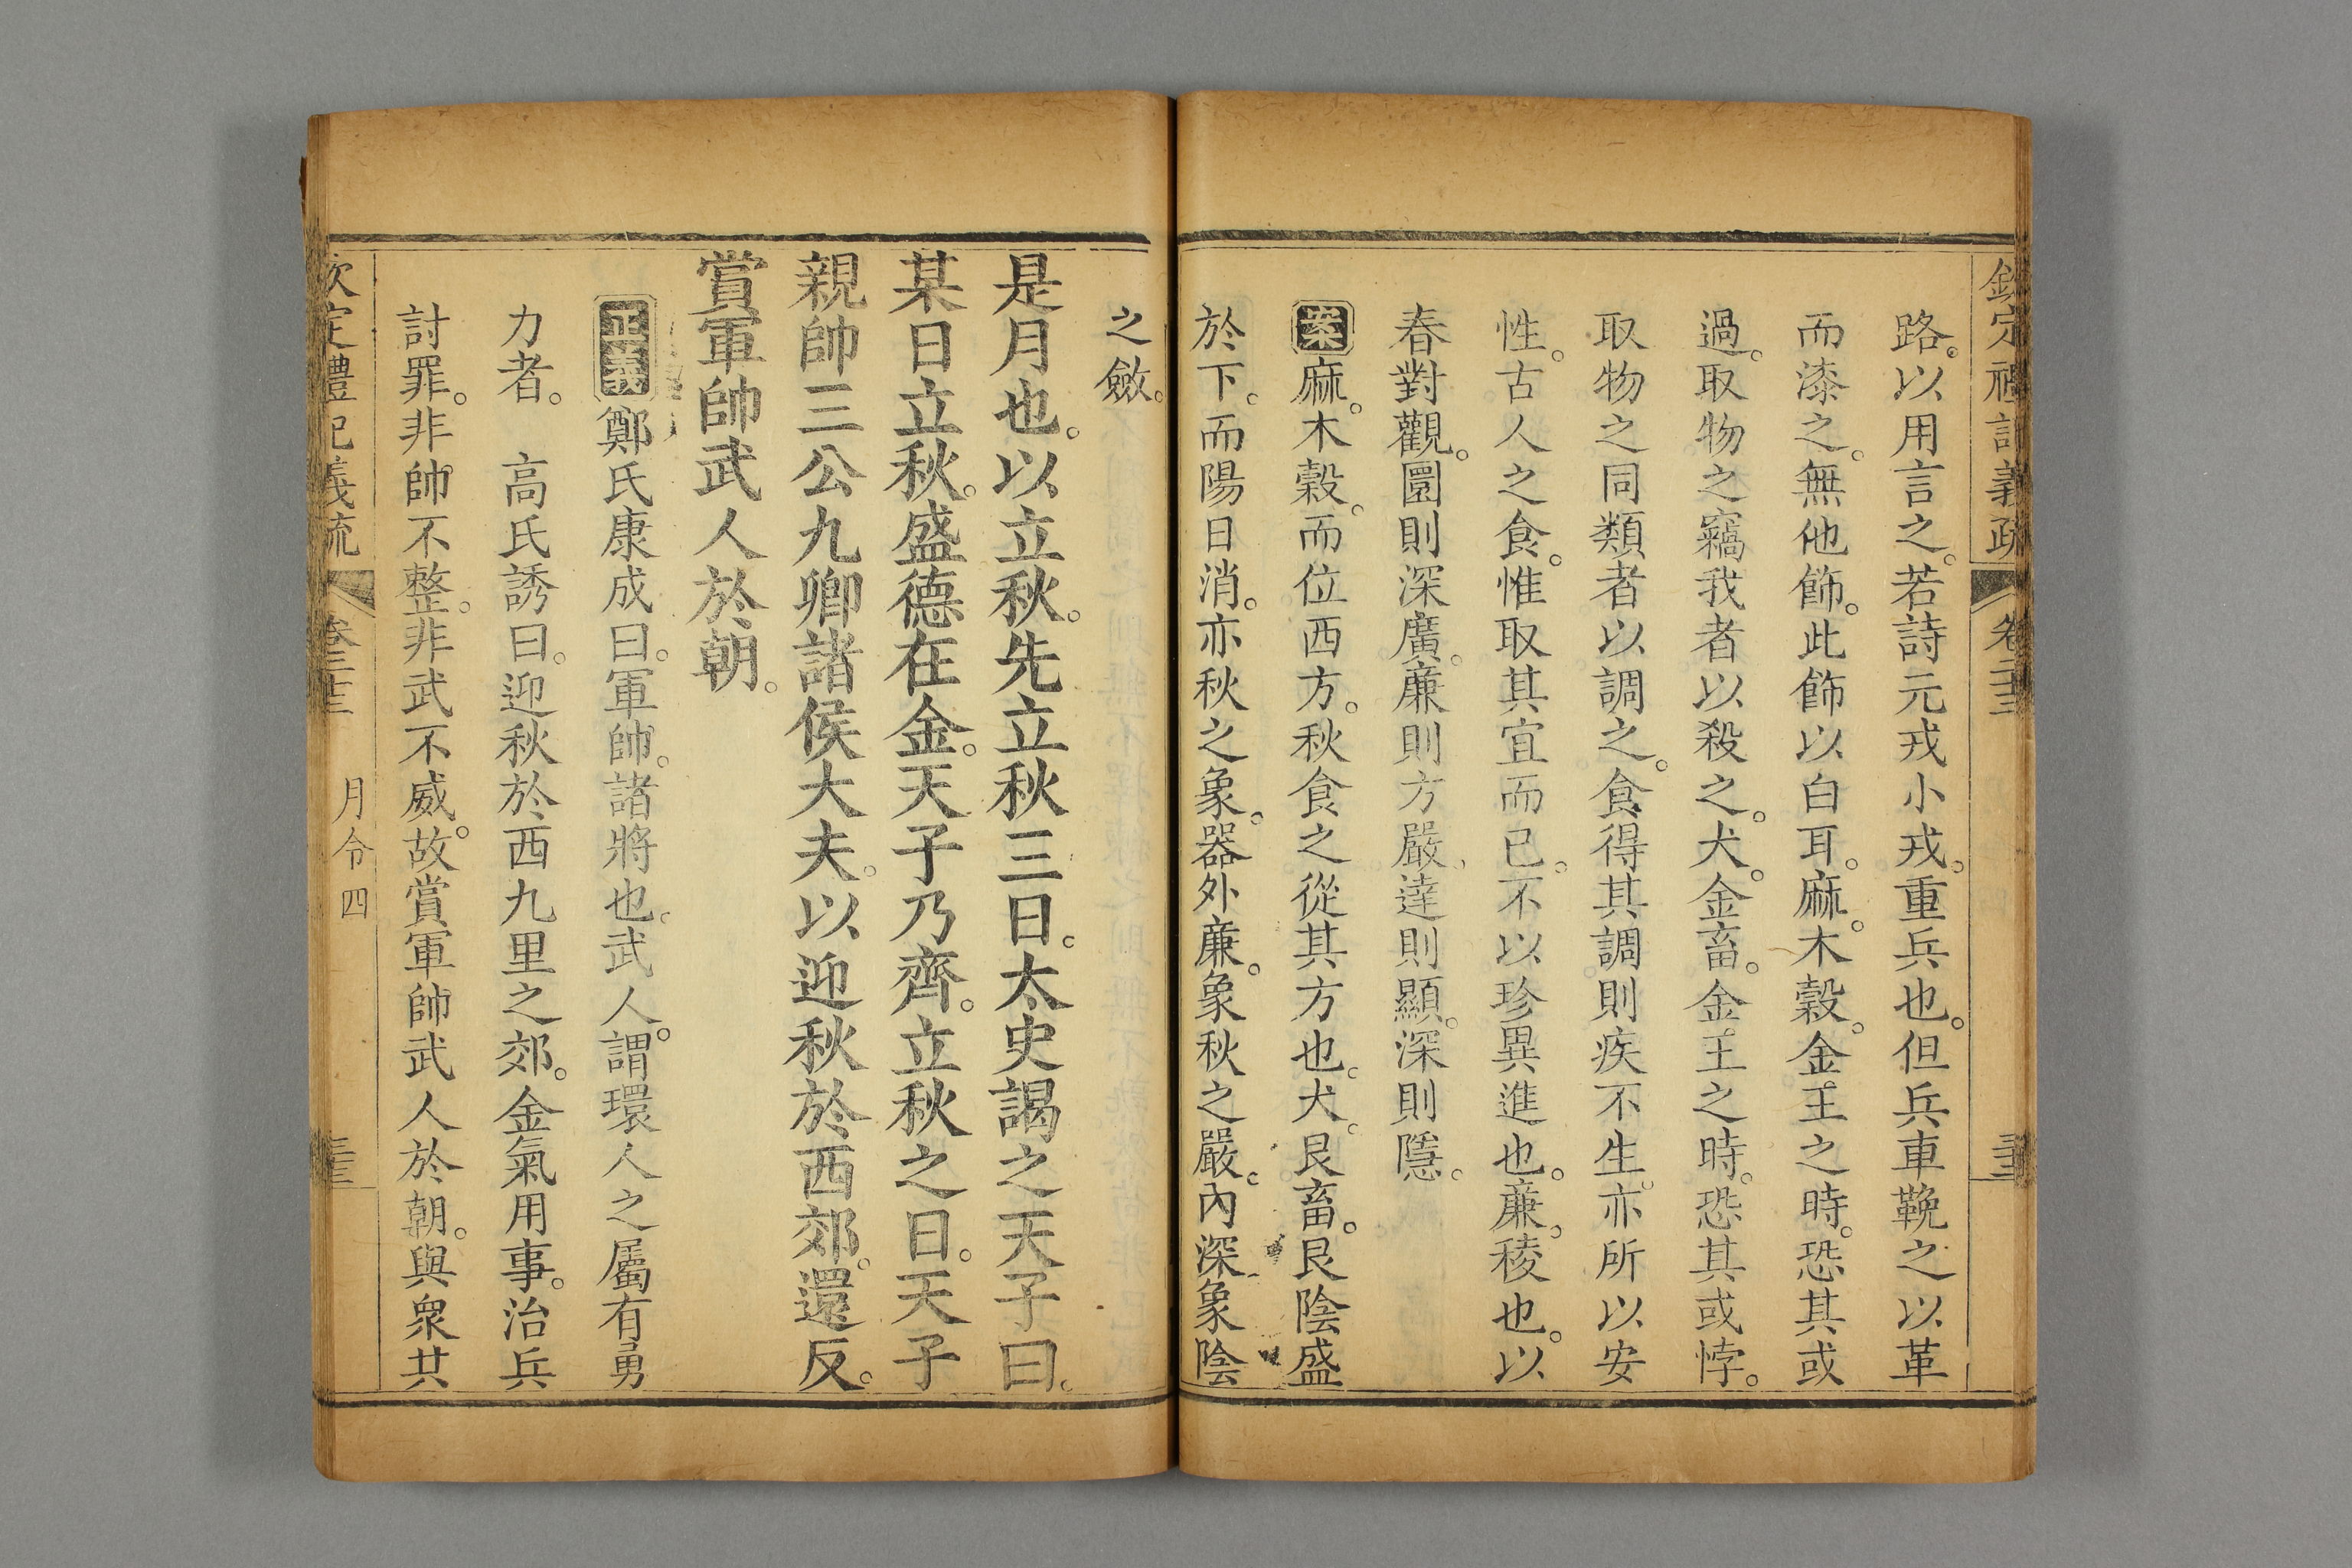 欽定禮記義疏 卷二十三
路。以用言之。若詩元戎小戎。重兵也。但兵車鞔之以革
而漆之。無他飾。此飾以白耳。麻。木穀。金王之時。恐其或
過。取物之竊我者以殺之。犬。金畜。金王之時。恐其或悖。
取物之同類者以調之。食得其調則疾不生。亦所以安
性。古人之食。惟取其宜而已。不以珍異進也。廉。稜也。以
春對觀。圜則深廣。廉則方嚴。達則顯。深則隱。
案麻。木穀。而位西方。秋食之從其方也。犬。艮畜。艮陰盛
於下。而陽日消。亦秋之象。器外廉。象秋之嚴。內深象陰
之斂。
是月也。以立秋。先立秋三日。太史謁之天子曰。
某日立秋。盛德在金。天子乃齊。立秋之日。天子
親帥三公九卿諸侯大夫。以迎秋於西郊。還反。
賞軍帥武人於朝。
正義鄭氏康成曰。軍帥。諸將也。武人。謂環人之屬有勇
力者。 高氏誘曰。迎秋於西九里之郊。金氣用事。治兵
討罪。非帥不整。非武不威。故賞軍帥武人於朝。與衆共
欽定禮記義疏 卷二十三 月令四